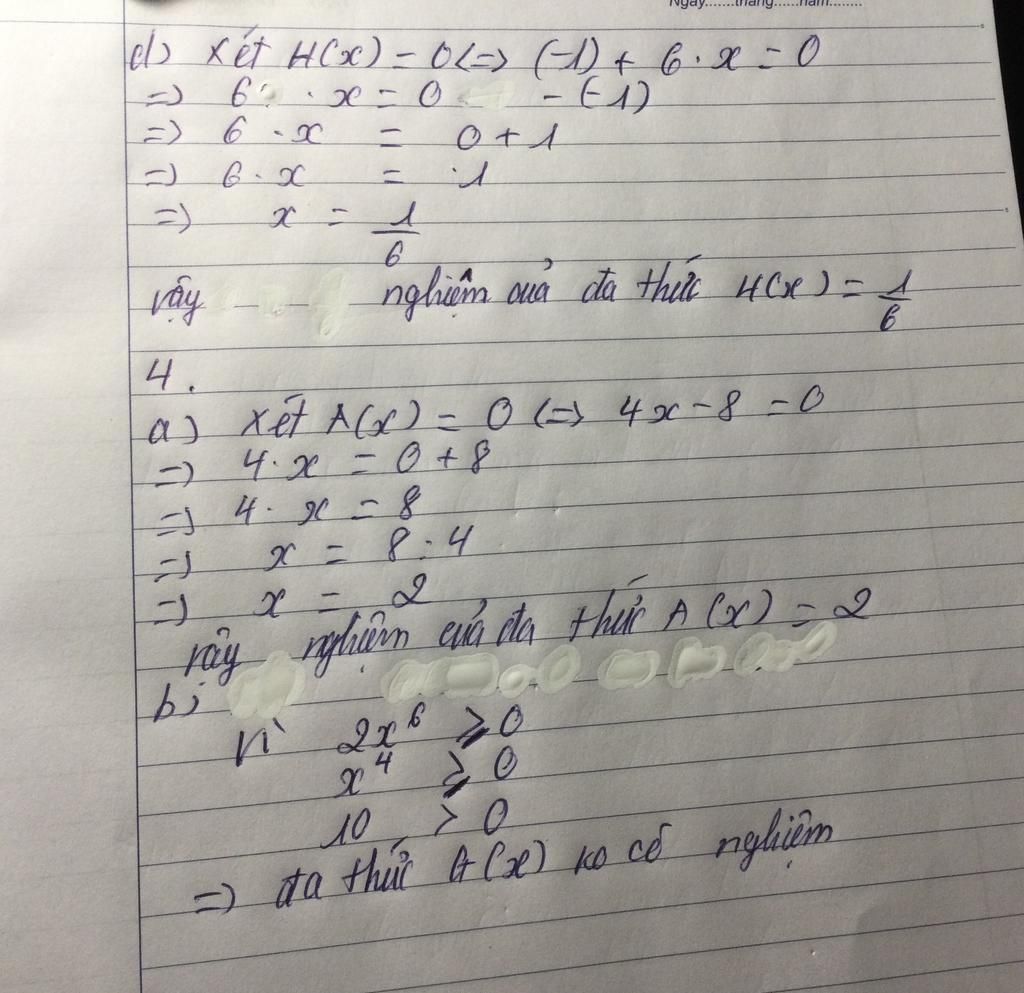 Ngày.......tháng......năm........
d) Xét H(x) = 0 <=> (-1) + 6 . x = 0
=> 6 . x = 0 - (-1)
=> 6 . x = 0 + 1
=> 6 . x = 1
=> x = 1/6
Vậy nghiệm của đa thức H(x) = 1/6
4.
a) Xét A(x) = 0 <=> 4x - 8 = 0
=> 4 . x = 0 + 8
=> 4 . x = 8
=> x = 8 : 4
=> x = 2
Vậy nghiệm của đa thức A(x) = 2
b)
Vì 2x⁶ ≥ 0
x⁴ ≥ 0
10 > 0
=> đa thức A(x) ko có nghiệm